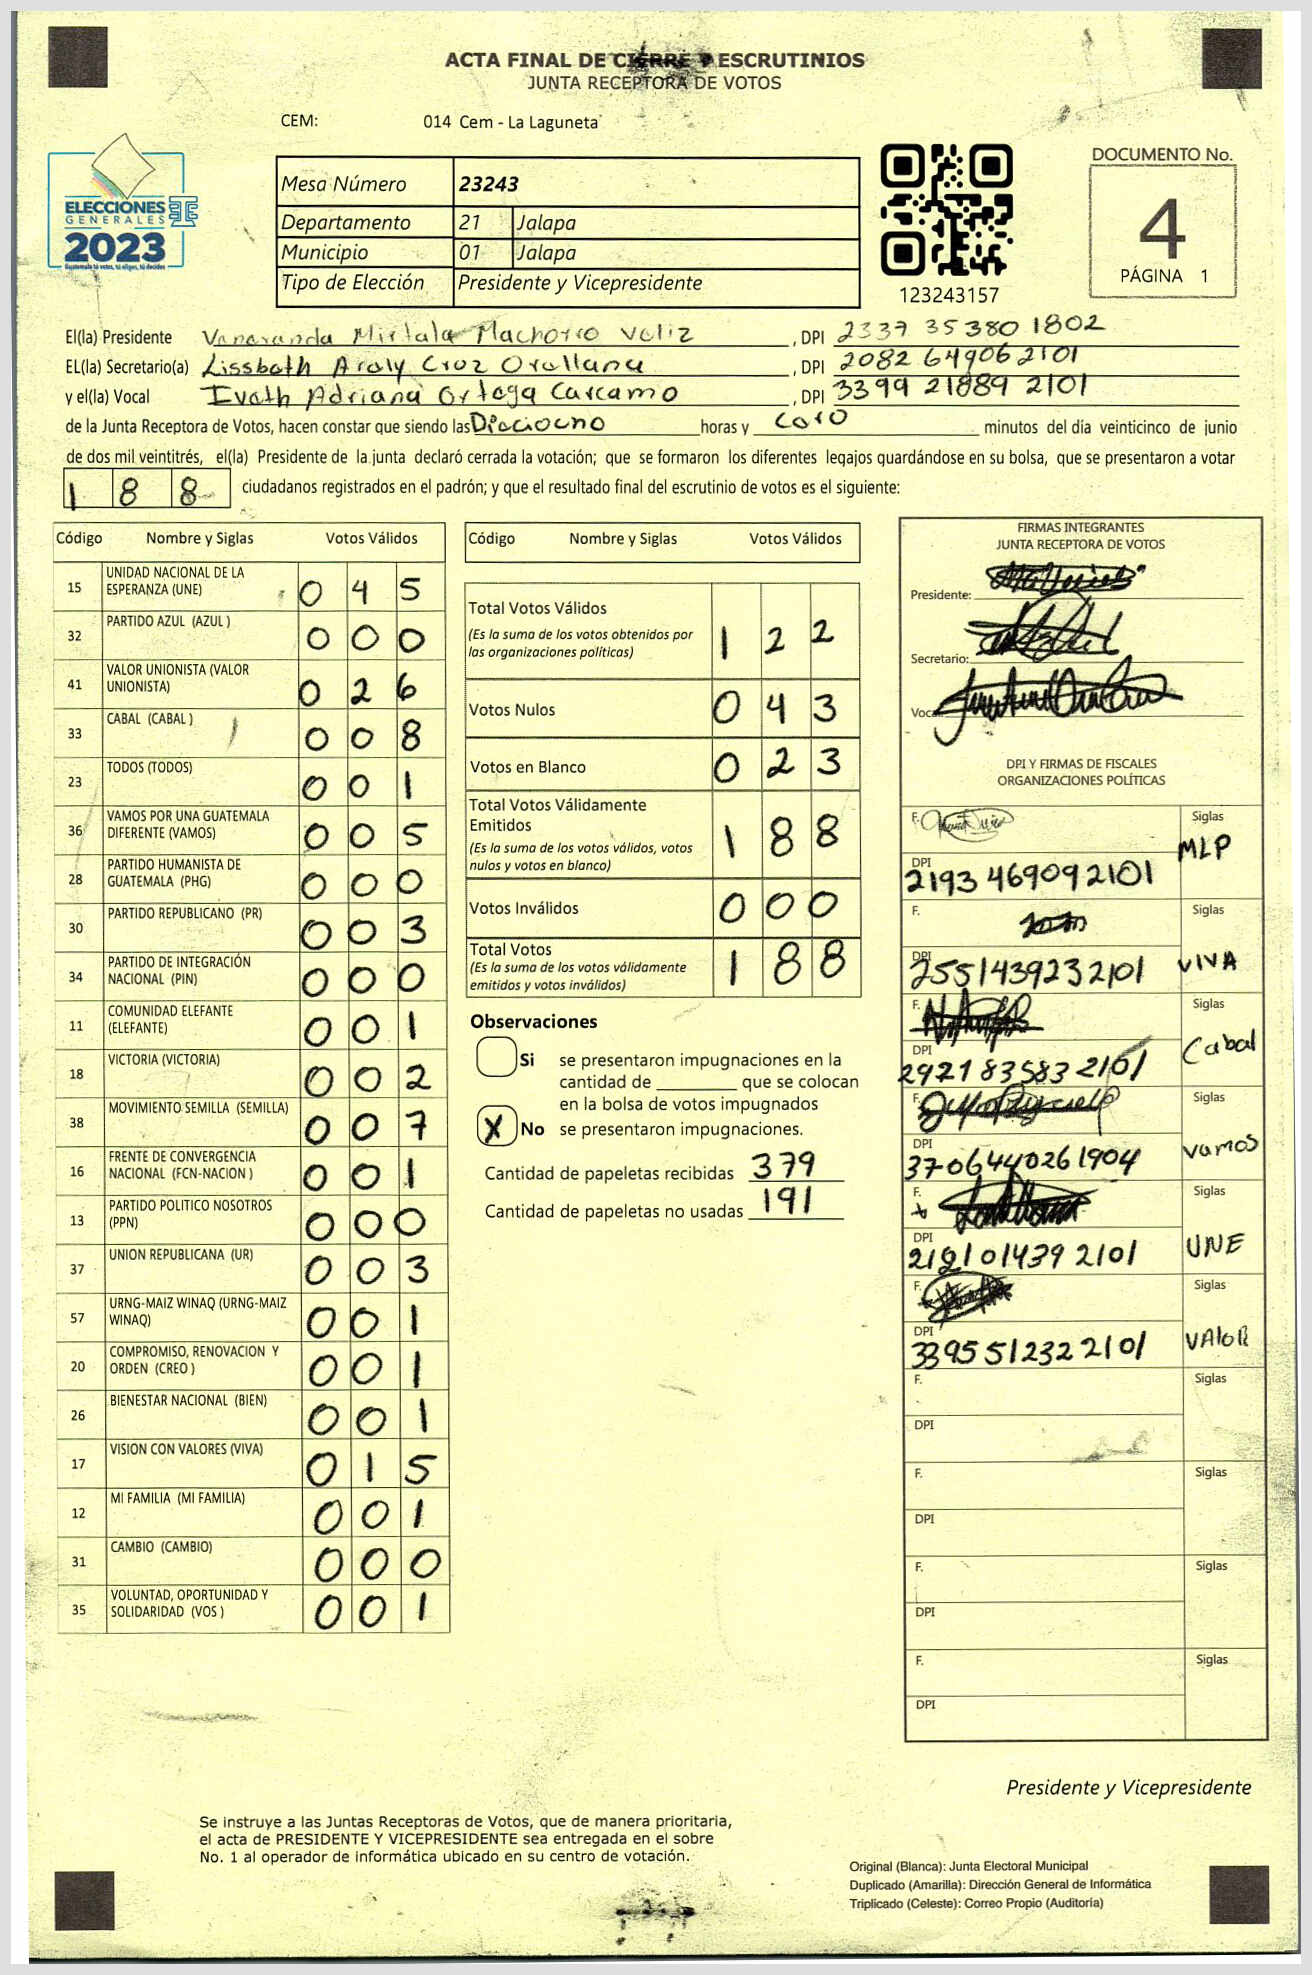 ACTA FINAL DE CIERRE Y ESCRUTINIOS
JUNTA RECEPTORA DE VOTOS
CEM: 014 Cem - La Laguneta
ELECCIONES
GENERALES
2023
Guatemala tú votas, tú eliges, tú decides
Mesa Número 23243
Departamento 21 Jalapa
Municipio 01 Jalapa
Tipo de Elección Presidente y Vicepresidente
123243157
DOCUMENTO No.
4
PÁGINA 1
El(la) Presidente Veneranda Mirtala Machorro Veliz , DPI 2337 35380 1802
EL(la) Secretario(a) Lissbeth Araly Cruz Orellana , DPI 2082 64906 2101
y el(la) Vocal Iveth Adriana Ortega Carcamo , DPI 3399 21889 2101
de la Junta Receptora de Votos, hacen constar que siendo las Dieciocho horas y cero minutos del día veinticinco de junio
de dos mil veintitrés, el(la) Presidente de la junta declaró cerrada la votación; que se formaron los diferentes legajos guardándose en su bolsa, que se presentaron a votar
1 8 8 ciudadanos registrados en el padrón; y que el resultado final del escrutinio de votos es el siguiente:
Código Nombre y Siglas Votos Válidos
15 UNIDAD NACIONAL DE LA ESPERANZA (UNE) 0 4 5
32 PARTIDO AZUL (AZUL ) 0 0 0
41 VALOR UNIONISTA (VALOR UNIONISTA) 0 2 6
33 CABAL (CABAL ) 0 0 8
23 TODOS (TODOS) 0 0 1
36 VAMOS POR UNA GUATEMALA DIFERENTE (VAMOS) 0 0 5
28 PARTIDO HUMANISTA DE GUATEMALA (PHG) 0 0 0
30 PARTIDO REPUBLICANO (PR) 0 0 3
34 PARTIDO DE INTEGRACIÓN NACIONAL (PIN) 0 0 0
11 COMUNIDAD ELEFANTE (ELEFANTE) 0 0 1
18 VICTORIA (VICTORIA) 0 0 2
38 MOVIMIENTO SEMILLA (SEMILLA) 0 0 7
16 FRENTE DE CONVERGENCIA NACIONAL (FCN-NACION ) 0 0 1
13 PARTIDO POLITICO NOSOTROS (PPN) 0 0 0
37 UNION REPUBLICANA (UR) 0 0 3
57 URNG-MAIZ WINAQ (URNG-MAIZ WINAQ) 0 0 1
20 COMPROMISO, RENOVACION Y ORDEN (CREO ) 0 0 1
26 BIENESTAR NACIONAL (BIEN) 0 0 1
17 VISION CON VALORES (VIVA) 0 1 5
12 MI FAMILIA (MI FAMILIA) 0 0 1
31 CAMBIO (CAMBIO) 0 0 0
35 VOLUNTAD, OPORTUNIDAD Y SOLIDARIDAD (VOS ) 0 0 1
Código Nombre y Siglas Votos Válidos
Total Votos Válidos 1 2 2
(Es la suma de los votos obtenidos por
las organizaciones políticas)
Votos Nulos 0 4 3
Votos en Blanco 0 2 3
Total Votos Válidamente
Emitidos 1 8 8
(Es la suma de los votos válidos, votos
nulos y votos en blanco)
Votos Inválidos 0 0 0
Total Votos 1 8 8
(Es la suma de los votos válidamente
emitidos y votos inválidos)
Observaciones
Si se presentaron impugnaciones en la
cantidad de ________ que se colocan
en la bolsa de votos impugnados
X No se presentaron impugnaciones.
Cantidad de papeletas recibidas 379
Cantidad de papeletas no usadas 191
FIRMAS INTEGRANTES
JUNTA RECEPTORA DE VOTOS
Presidente:
Secretario:
Vocal
DPI Y FIRMAS DE FISCALES
ORGANIZACIONES POLÍTICAS
F. Siglas
MLP
DPI 2193 46909 2101
F. Siglas
DPI 2551439232101 VIVA
F. Siglas
Cabal
DPI 2921 83583 2101
F. Siglas
DPI 3706440261904 vamos
F. Siglas
DPI 2121 01439 2101 UNE
F. Siglas
DPI 3395 51232 2101 VALOR
F. Siglas
DPI
F. Siglas
DPI
F. Siglas
DPI
F. Siglas
DPI
Presidente y Vicepresidente
Se instruye a las Juntas Receptoras de Votos, que de manera prioritaria,
el acta de PRESIDENTE Y VICEPRESIDENTE sea entregada en el sobre
No. 1 al operador de informática ubicado en su centro de votación.
Original (Blanca): Junta Electoral Municipal
Duplicado (Amarilla): Dirección General de Informática
Triplicado (Celeste): Correo Propio (Auditoría)